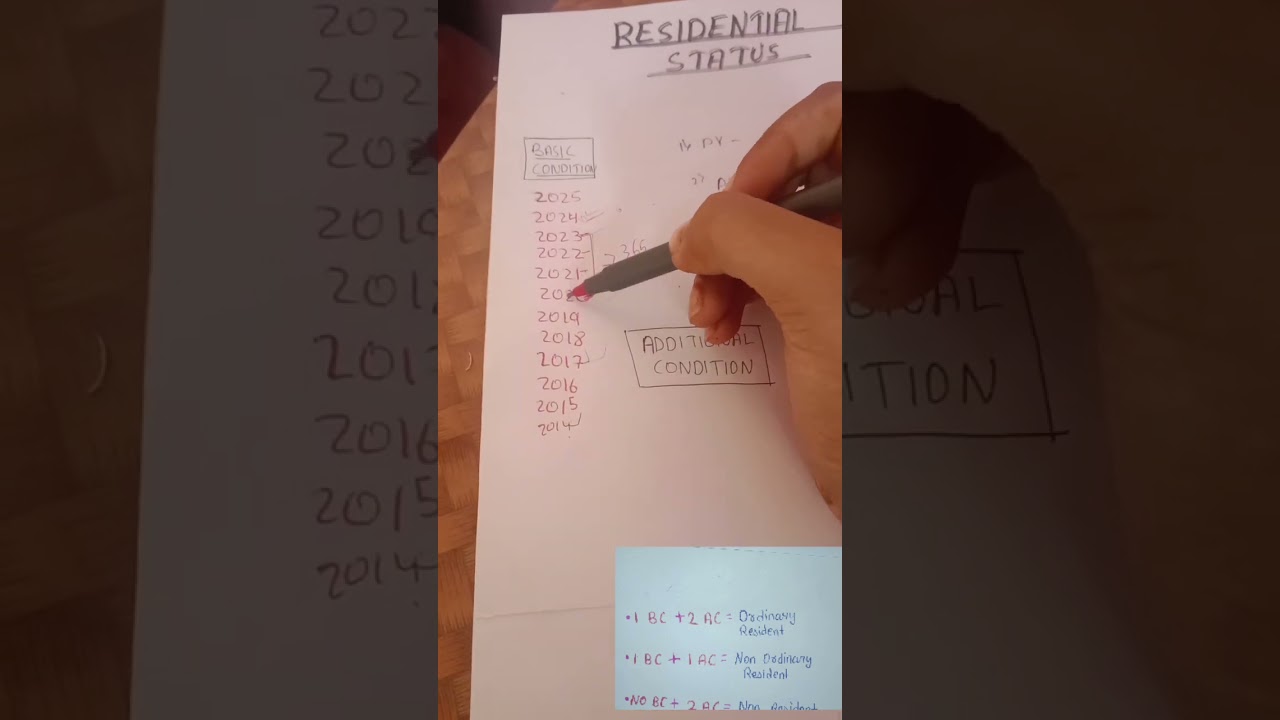 RESIDENTIAL
STATUS
BASIC
CONDITION
2025
2024
2023
2022
2021
2019
2018
2017
2016
2015
2014
1) PY -
2)
ADDITIONAL
CONDITION
• 1 BC + 2 AC = Ordinary
Resident
• 1 BC + 1 AC = Non Ordinary
Resident
• NO BC + 2 AC = Non Resident